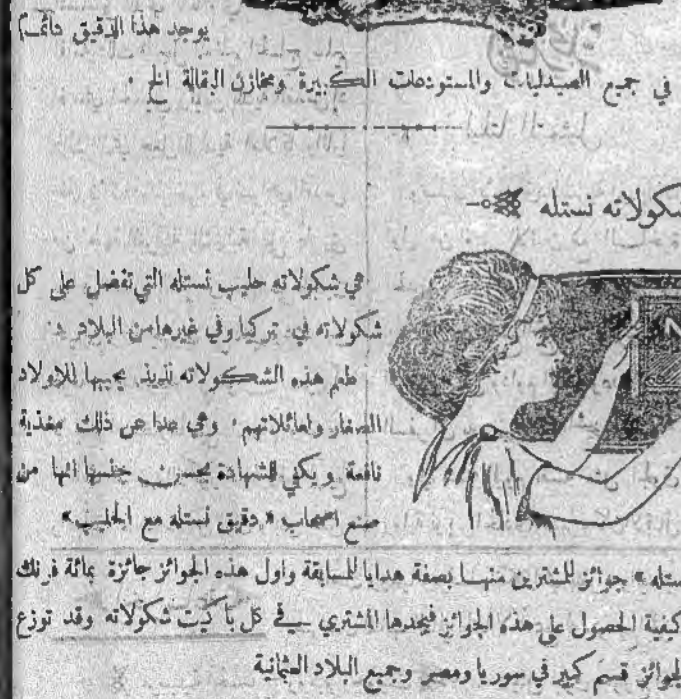 يوجد هذا الدقيق دائماً
في جميع الصيدليات والمستودعات الكبيرة ومخازن البقالة الخ ·
شكولاته نستله
هي شكولاته حليب نستله التي تفضل على كل
شكولاته في تركيا وفي غيرها من البلاد
طعم هذه الشكولاته لذيذ يحببها للاولاد
الصغار ولعائلاتهم · وهي عدا عن ذلك مغذية
نافعة ويكفي للشهادة بحسن جنسها انها من
صنع اصحاب «دقيق نستله مع الحليب»
نستله» جوائز للمشترين منها بصفة هدايا للمسابقة واول هذه الجوائز جائزة بمائة فرنك
كيفية الحصول على هذه الجوائز فيجدها المشتري في كل باكيت شكولاته وقد توزع
الجوائز قسم كبير في سوريا ومصر وجميع البلاد العثمانية